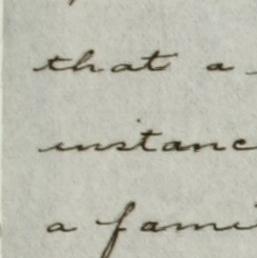 that a
instanc
a fami